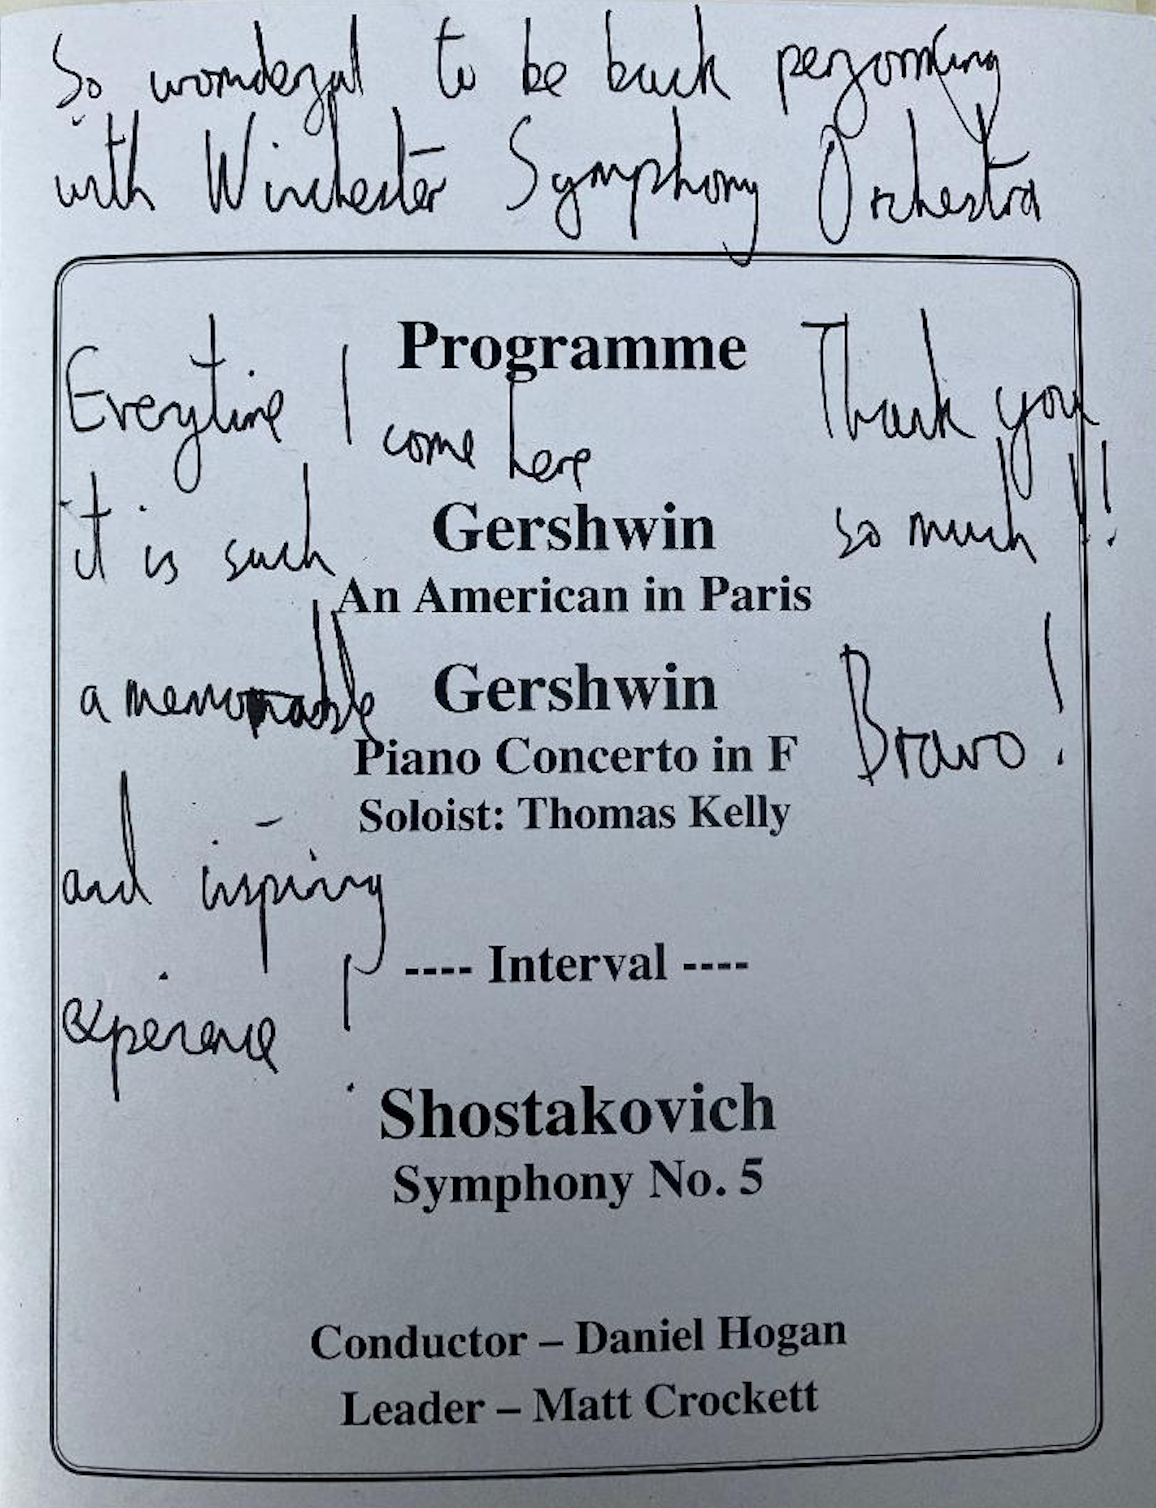 So wonderful to be back performing
with Winchester Symphony Orchestra
Programme
Everytime I come here
Thank you
so much !!
it is such
Gershwin
An American in Paris
a memorable
Gershwin
Bravo!
Piano Concerto in F
Soloist: Thomas Kelly
and inspiring
---- Interval ----
experience !
Shostakovich
Symphony No. 5
Conductor – Daniel Hogan
Leader – Matt Crockett